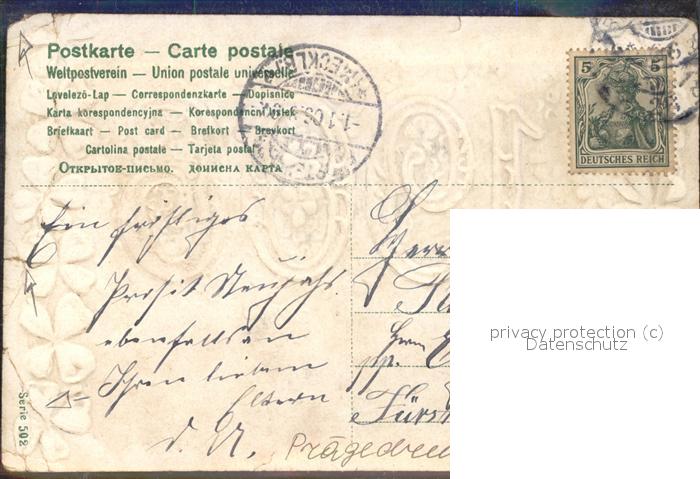 Postkarte — Carte postale
Weltpostverein — Union postale universelle
Levelező-Lap — Correspondenzkarte — Dopisnice
Karta korespondencyjna — Korespondenční lístek
Briefkaart — Post card — Brefkort — Brevkort
Cartolina postale — Tarjeta postal
Открытое-письмо. дописна карта
5 5
DEUTSCHES REICH
(MECKLB)
Ein
Prosit Neujahr
ebenfalls an
Ihren lieben
Eltern
Herrn
pp.
Fürst
Prägedruc
Serie 502
privacy protection (c)
Datenschutz